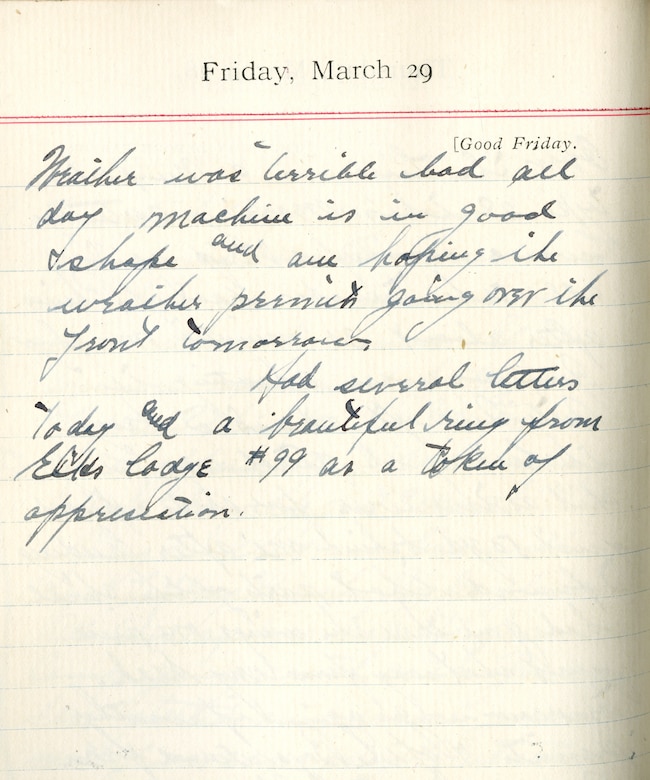 Friday, March 29
[Good Friday.
Weather was terrible bad all
day machine is in good
shape and am hoping the
weather permits going over the
front tomorrow
Had several letters
Today and a beautiful ring from
Elks lodge #99 as a token of
appresiation.